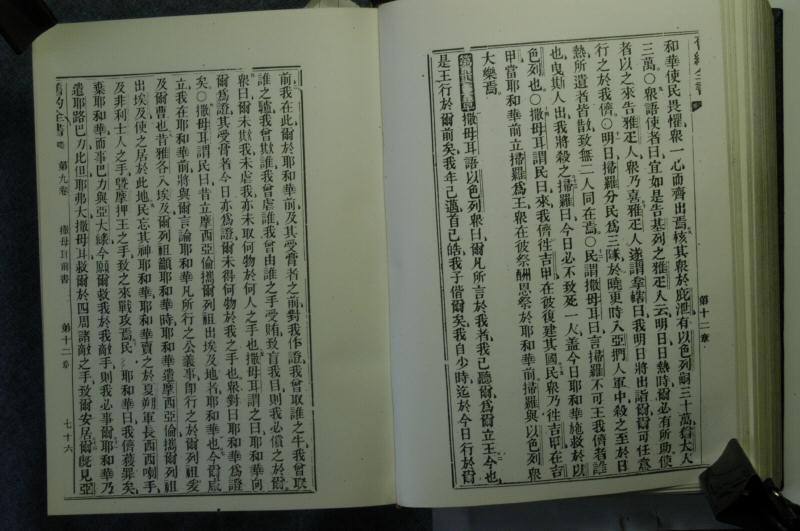 舊約全書
第十二章
和華使民畏懼衆一心而齊出焉核其衆於庇泄有以色列嗣三十萬猶太人
三萬○衆語使者曰宜如是告基列之雅疋人云明日日熱時爾必有所助使
者以之來告雅疋人衆乃喜雅疋人遂謂拿轄曰我明日將出詣爾爾可任意
行之於我儕○明日掃羅分民爲三隊於曉更時入亞捫人軍中殺之至於日
熱所遺者皆散致無二人同在焉○民謂撒母耳曰言掃羅不可王我儕者誰
也曳斯人出我將殺之掃羅曰今日必不致死一人蓋今日耶和華施救於以
色列也○撒母耳謂民曰來我儕徃吉甲在彼復建其國民衆乃徃吉甲在吉
甲當耶和華前立掃羅爲王衆在彼祭酬恩祭於耶和華前掃羅與以色列衆
大樂焉
撒母耳語以色列衆曰爾凡所言於我者我已聽爾爲爾立王今也
是王行於爾前矣我年已邁首已皓我子偕爾矣我自少時迄於今日行於爾
前我在此爾於耶和華前及其受膏者之前對我作證我曾取誰之牛我曾取
誰之驢我曾欺誰我曾虐誰我曾由誰之手受賄致盲我目則我必償之於爾
衆曰爾未欺我未虐我亦未取何物於何人之手也撒母耳謂之曰耶和華向
爾爲證其受膏者今日亦爲證爾未得何物於我之手也衆對曰耶和華爲證
矣○撒母耳謂民曰昔立摩西亞倫攜爾列祖出埃及地者耶和華也今爾咸
立我在耶和華前將與爾言論耶和華凡所行之公義事卽行之於爾列祖爰
及爾曹也昔雅各入埃及爾列祖籲耶和華時耶和華遣摩西亞倫攜爾列祖
出埃及使之居於此地民忘其神耶和華耶和華賣之於夏朔軍長西西喇手
及非利士人之手曁摩押王之手致之來戰攻焉民籲耶和華曰我儕獲罪矣
棄耶和華而事巴力與亞大綠今願爾救我於我敵手則我必事爾耶和華乃
遣耶路巴力比但耶弗大撒母耳救爾於四周諸敵之手致爾安居爾旣見亞
舊約全書 第九卷 撒母耳前書 第十二章 七十六